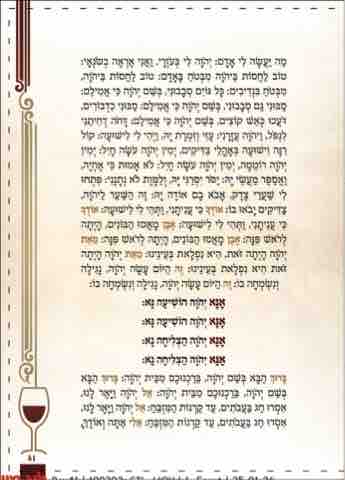 מַה יַּעֲשֶׂה לִי אָדָם: יְהֹוָה לִי בְּעֹזְרָי, וַאֲנִי אֶרְאֶה בְשֹׂנְאָי:
טוֹב לַחֲסוֹת בַּיהֹוָה מִבְּטֹחַ בָּאָדָם: טוֹב לַחֲסוֹת בַּיהֹוָה,
מִבְּטֹחַ בִּנְדִיבִים: כָּל גּוֹיִם סְבָבוּנִי, בְּשֵׁם יְהֹוָה כִּי אֲמִילַם:
סַבּוּנִי גַם סְבָבוּנִי, בְּשֵׁם יְהֹוָה כִּי אֲמִילַם: סַבּוּנִי כִדְבוֹרִים,
דֹּעֲכוּ כְּאֵשׁ קוֹצִים, בְּשֵׁם יְהֹוָה כִּי אֲמִילַם: דָּחֹה דְחִיתַנִי
לִנְפֹּל, וַיהֹוָה עֲזָרָנִי: עָזִּי וְזִמְרָת יָהּ, וַיְהִי לִי לִישׁוּעָה: קוֹל
רִנָּה וִישׁוּעָה בְּאָהֳלֵי צַדִּיקִים, יְמִין יְהֹוָה עֹשָׂה חָיִל: יְמִין
יְהֹוָה רוֹמֵמָה, יְמִין יְהֹוָה עֹשָׂה חָיִל: לֹא אָמוּת כִּי אֶחְיֶה,
וַאֲסַפֵּר מַעֲשֵׂי יָהּ: יַסֹּר יִסְּרַנִּי יָּהּ, וְלַמָּוֶת לֹא נְתָנָנִי: פִּתְחוּ
לִי שַׁעֲרֵי צֶדֶק, אָבֹא בָם אוֹדֶה יָהּ: זֶה הַשַּׁעַר לַיהֹוָה,
צַדִּיקִים יָבֹאוּ בוֹ: אוֹדְךָ כִּי עֲנִיתָנִי, וַתְּהִי לִי לִישׁוּעָה: אוֹדְךָ
כִּי עֲנִיתָנִי, וַתְּהִי לִי לִישׁוּעָה: אֶבֶן מָאֲסוּ הַבּוֹנִים, הָיְתָה
לְרֹאשׁ פִּנָּה: אֶבֶן מָאֲסוּ הַבּוֹנִים, הָיְתָה לְרֹאשׁ פִּנָּה: מֵאֵת
יְהֹוָה הָיְתָה זֹּאת, הִיא נִפְלָאת בְּעֵינֵינוּ: מֵאֵת יְהֹוָה הָיְתָה
זֹּאת הִיא נִפְלָאת בְּעֵינֵינוּ: זֶה הַיּוֹם עָשָׂה יְהֹוָה, נָגִילָה
וְנִשְׂמְחָה בוֹ: זֶה הַיּוֹם עָשָׂה יְהֹוָה, נָגִילָה וְנִשְׂמְחָה בוֹ:
אָנָּא יְהֹוָה הוֹשִׁיעָה נָּא:
אָנָּא יְהֹוָה הוֹשִׁיעָה נָּא:
אָנָּא יְהֹוָה הַצְלִיחָה נָּא:
אָנָּא יְהֹוָה הַצְלִיחָה נָּא:
בָּרוּךְ הַבָּא בְּשֵׁם יְהֹוָה, בֵּרַכְנוּכֶם מִבֵּית יְהֹוָה: בָּרוּךְ הַבָּא
בְּשֵׁם יְהֹוָה, בֵּרַכְנוּכֶם מִבֵּית יְהֹוָה: אֵל יְהֹוָה וַיָּאֶר לָנוּ,
אִסְרוּ חַג בַּעֲבֹתִים, עַד קַרְנוֹת הַמִּזְבֵּחַ: אֵל יְהֹוָה וַיָּאֶר לָנוּ,
אִסְרוּ חַג בַּעֲבֹתִים, עַד קַרְנוֹת הַמִּזְבֵּחַ: אֵלִי אַתָּה וְאוֹדֶךָּ,